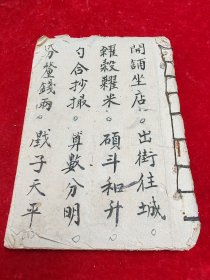 開誦坐店。出街往城
糴穀糶米。碩斗和升
勺合抄撮。算數分明
分釐錢兩。戥子天平